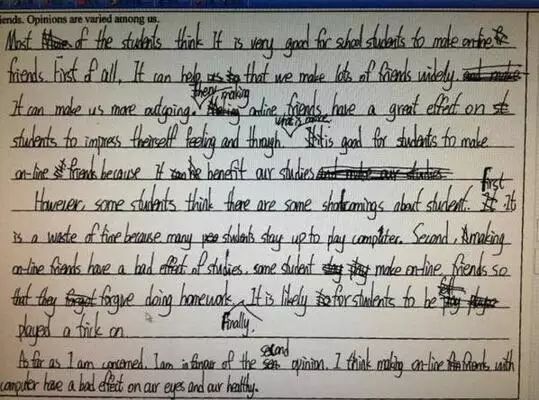 iends. Opinions are varied among us.
Most of the students think It is very good for school students to make on-line
friends. First of all, It can help us that we make lots of friends widely.
It can make us more outgoing. then, making on-line friends have a great effect on
students to impress theirself feeling and through. what is more, It is good for students to make
on-line friends because It can be benefit our studies
However, some students think there are some shortcomings about student. first It
is a waste of time because many students stay up to play computer. Second, making
on-line friends have a bad effect of studies. some student make on-line friends so
that they forgive doing homework. It is likely for students to be
played a trick on. Finally.
As far as I am concerned, I am in favour of the second opinion. I think making on-line friends with
computer have a bad effect on our eyes and our healthy.